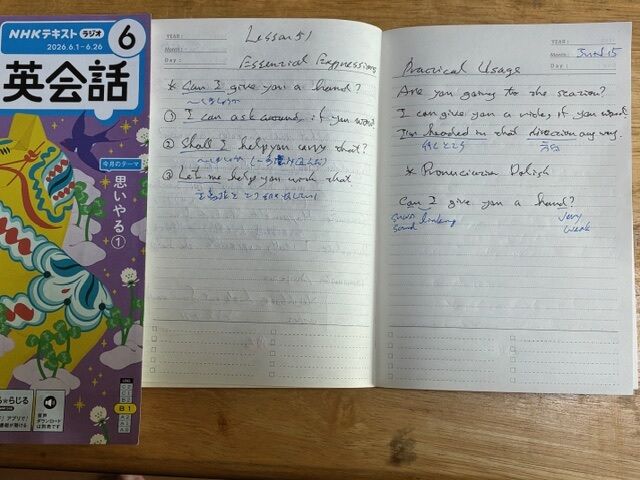 NHKテキスト ラジオ
2026.6.1-6.26
6
英会話
今月のテーマ
思いやる①
B1
音声
ダウンロード
は別売です
YEAR:
Month:
Day:
Lesson 51
Essencial Expressions
* Can I give you a hand?
～しましょうか
① I can ask around, if you want.
② Shall I help you carry that?
③ Let me help you with that
YEAR:
Month:
Day:
June 15
Practical Usage
Are you going to the station?
I can give you a ride, if you want.
I'm headed in that direction anyway.
方向
* Pronunciation Polish
Can I give you a hand?
linking
sound
very
weak